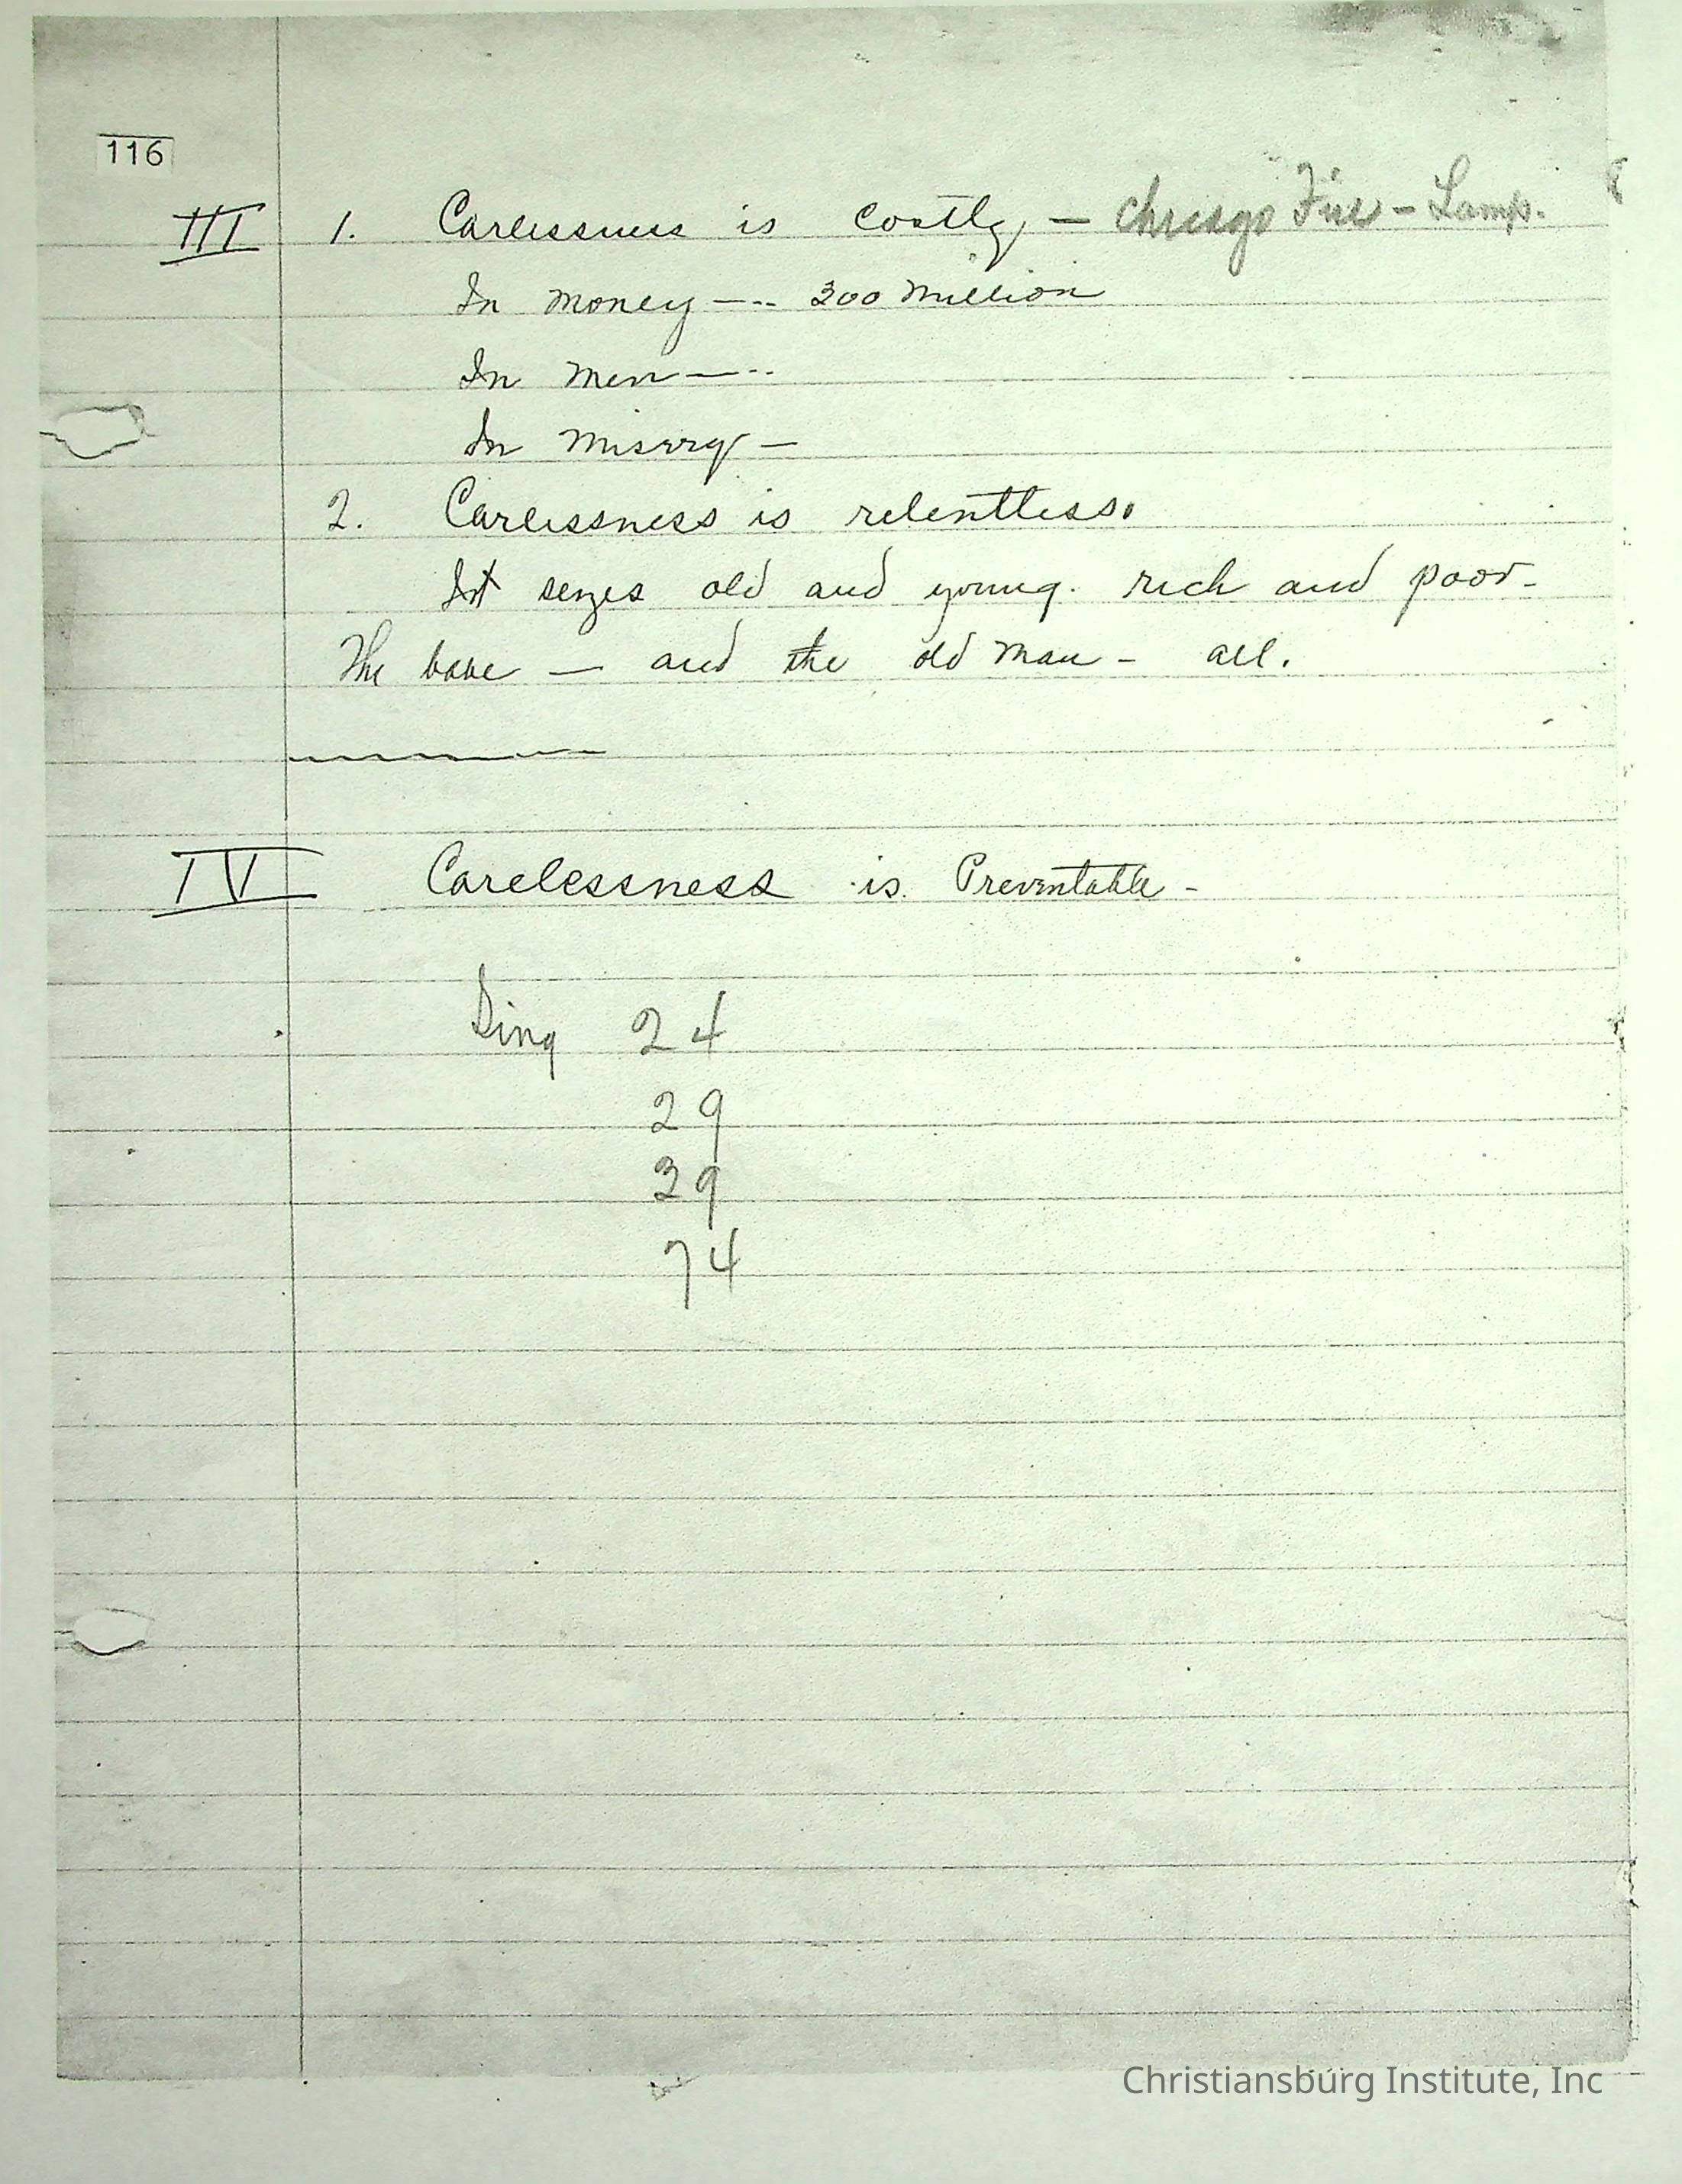 116
III 1. Carlessness is costly, — Chicago Fire - Lamp.
In money --- 300 million
In men ---
In misery —
2. Carlessness is relentless.
It sezes old and young. rich and poor-
The babe — and the old man - all.
IV Carelessness is Preventable -
Sing 24
29
39
74
Christiansburg Institute, Inc